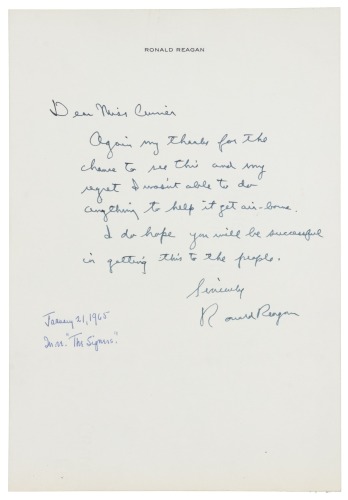 RONALD REAGAN
Dear Miss Currier
Again my thanks for the
chance to see this and my
regret I wasn't able to do
anything to help it get air-borne.
I do hope you will be successful
in getting this to the people.
Sincerely
Ronald Reagan
January 21, 1965
In re. "The Signers."